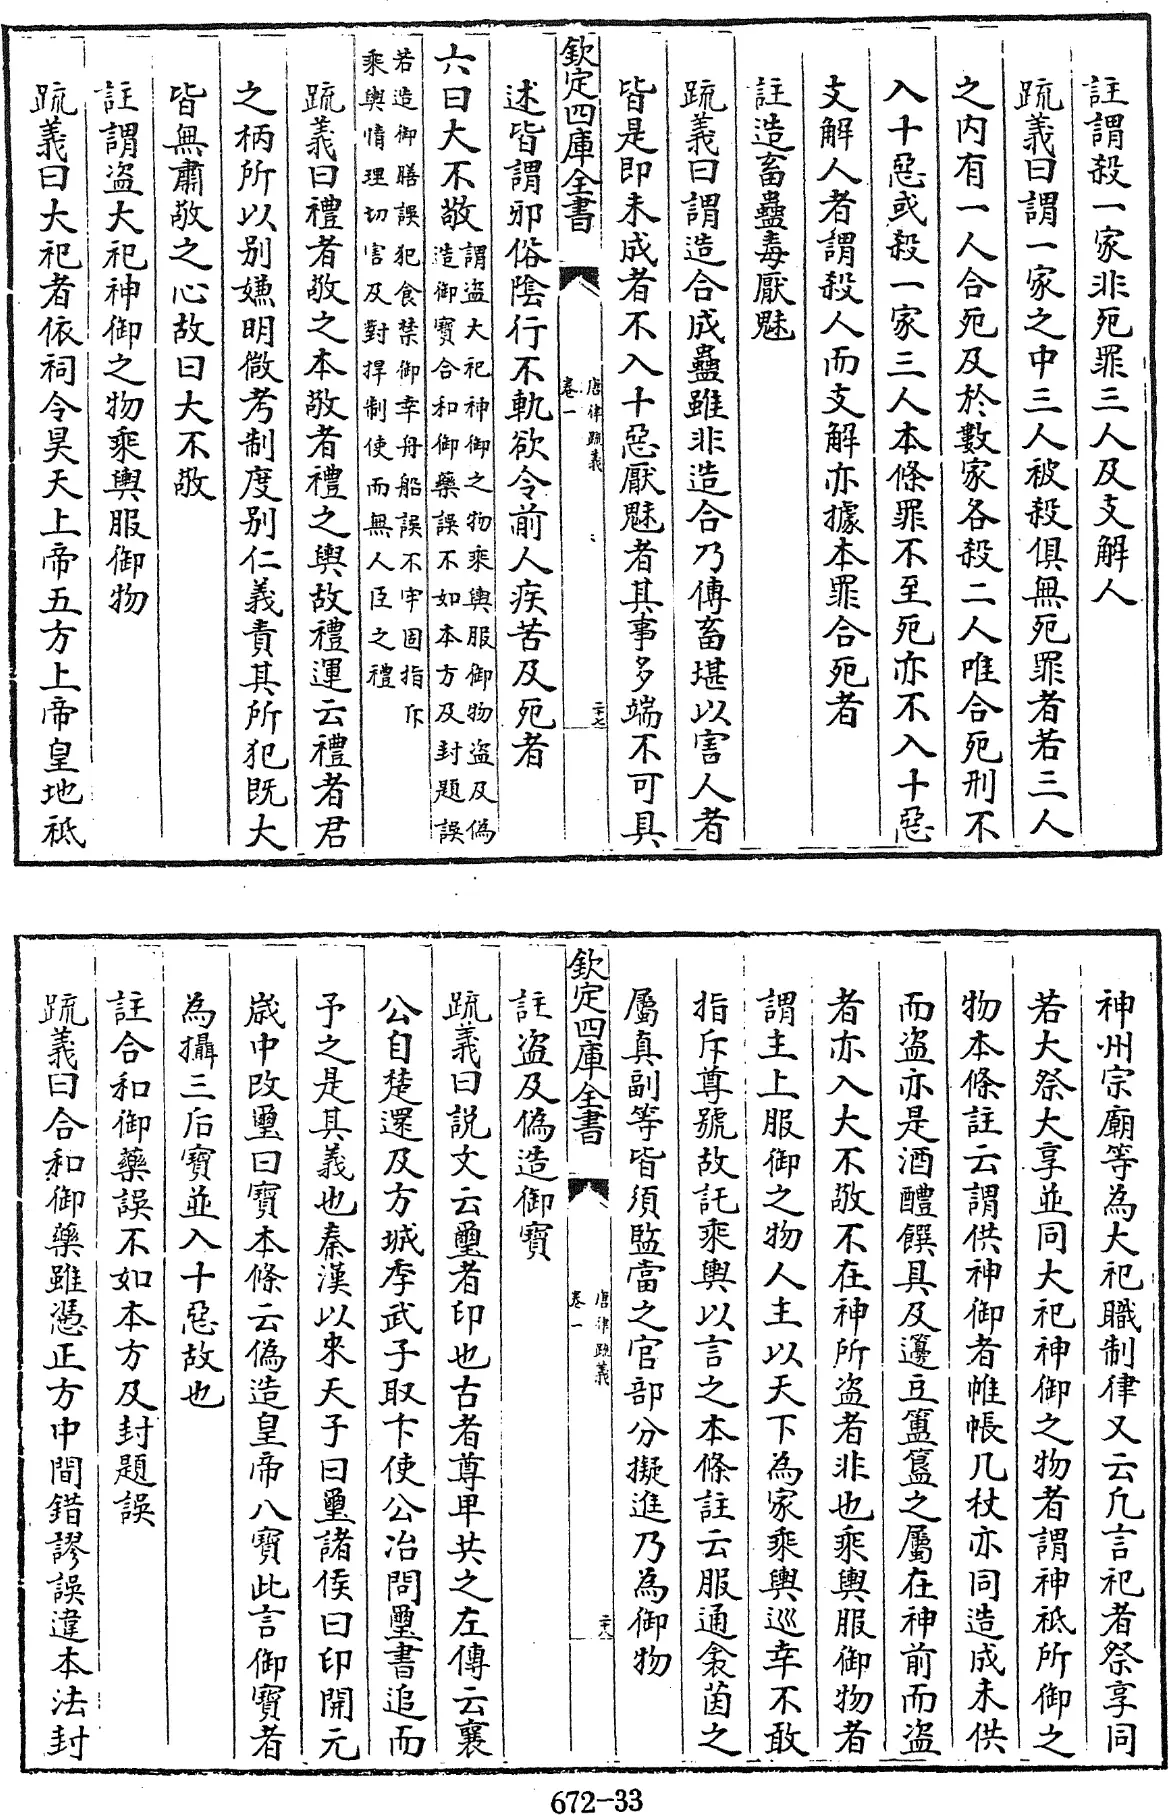 註謂殺一家非死罪三人及支解人
疏義曰謂一家之中三人被殺俱無死罪者若三人
之內有一人合死及於數家各殺二人唯合死刑不
入十惡或殺一家三人本條罪不至死亦不入十惡
支解人者謂殺人而支解亦據本罪合死者
註造畜蠱毒厭魅
疏義曰謂造合成蠱雖非造合乃傳畜堪以害人者
皆是即未成者不入十惡厭魅者其事多端不可具
欽定四庫全書
唐律疏義
卷一
二十七
述皆謂邪俗陰行不軌欲令前人疾苦及死者
六曰大不敬
謂盜大祀神御之物乘輿服御物盜及偽
造御寶合和御藥誤不如本方及封題誤
若造御膳誤犯食禁御幸舟船誤不牢固指斥
乘輿情理切害及對捍制使而無人臣之禮
疏義曰禮者敬之本敬者禮之輿故禮運云禮者君
之柄所以別嫌明微考制度別仁義責其所犯既大
皆無肅敬之心故曰大不敬
註謂盜大祀神御之物乘輿服御物
疏義曰大祀者依祠令昊天上帝五方上帝皇地祇
神州宗廟等為大祀職制律又云凡言祀者祭享同
若大祭大享並同大祀神御之物者謂神祇所御之
物本條註云謂供神御者帷帳几杖亦同造成未供
而盜亦是酒醴饌具及籩豆簠簋之屬在神前而盜
者亦入大不敬不在神所盜者非也乘輿服御物者
謂主上服御之物人主以天下為家乘輿巡幸不敢
指斥尊號故託乘輿以言之本條註云服通衾茵之
屬真副等皆須監當之官部分擬進乃為御物
欽定四庫全書
唐律疏義
卷一
二十八
註盜及偽造御寶
疏義曰說文云璽者印也古者尊卑共之左傳云襄
公自楚還及方城季武子取卞使公冶問璽書追而
予之是其義也秦漢以來天子曰璽諸侯曰印開元
歲中改璽曰寶本條云偽造皇帝八寶此言御寶者
為攝三后寶並入十惡故也
註合和御藥誤不如本方及封題誤
疏義曰合和御藥雖憑正方中間錯謬誤違本法封
672-33